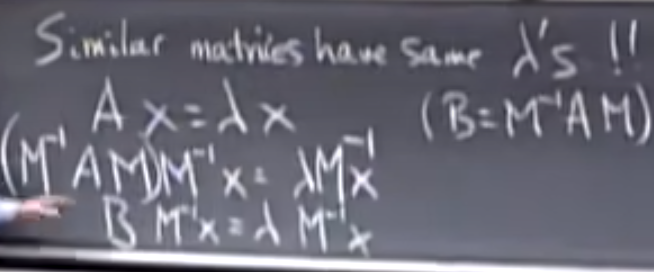 Similar matrices have same λ's !!
Ax=λx (B=M⁻¹AM)
(M⁻¹AM)M⁻¹x=λM⁻¹x
B M⁻¹x=λ M⁻¹x